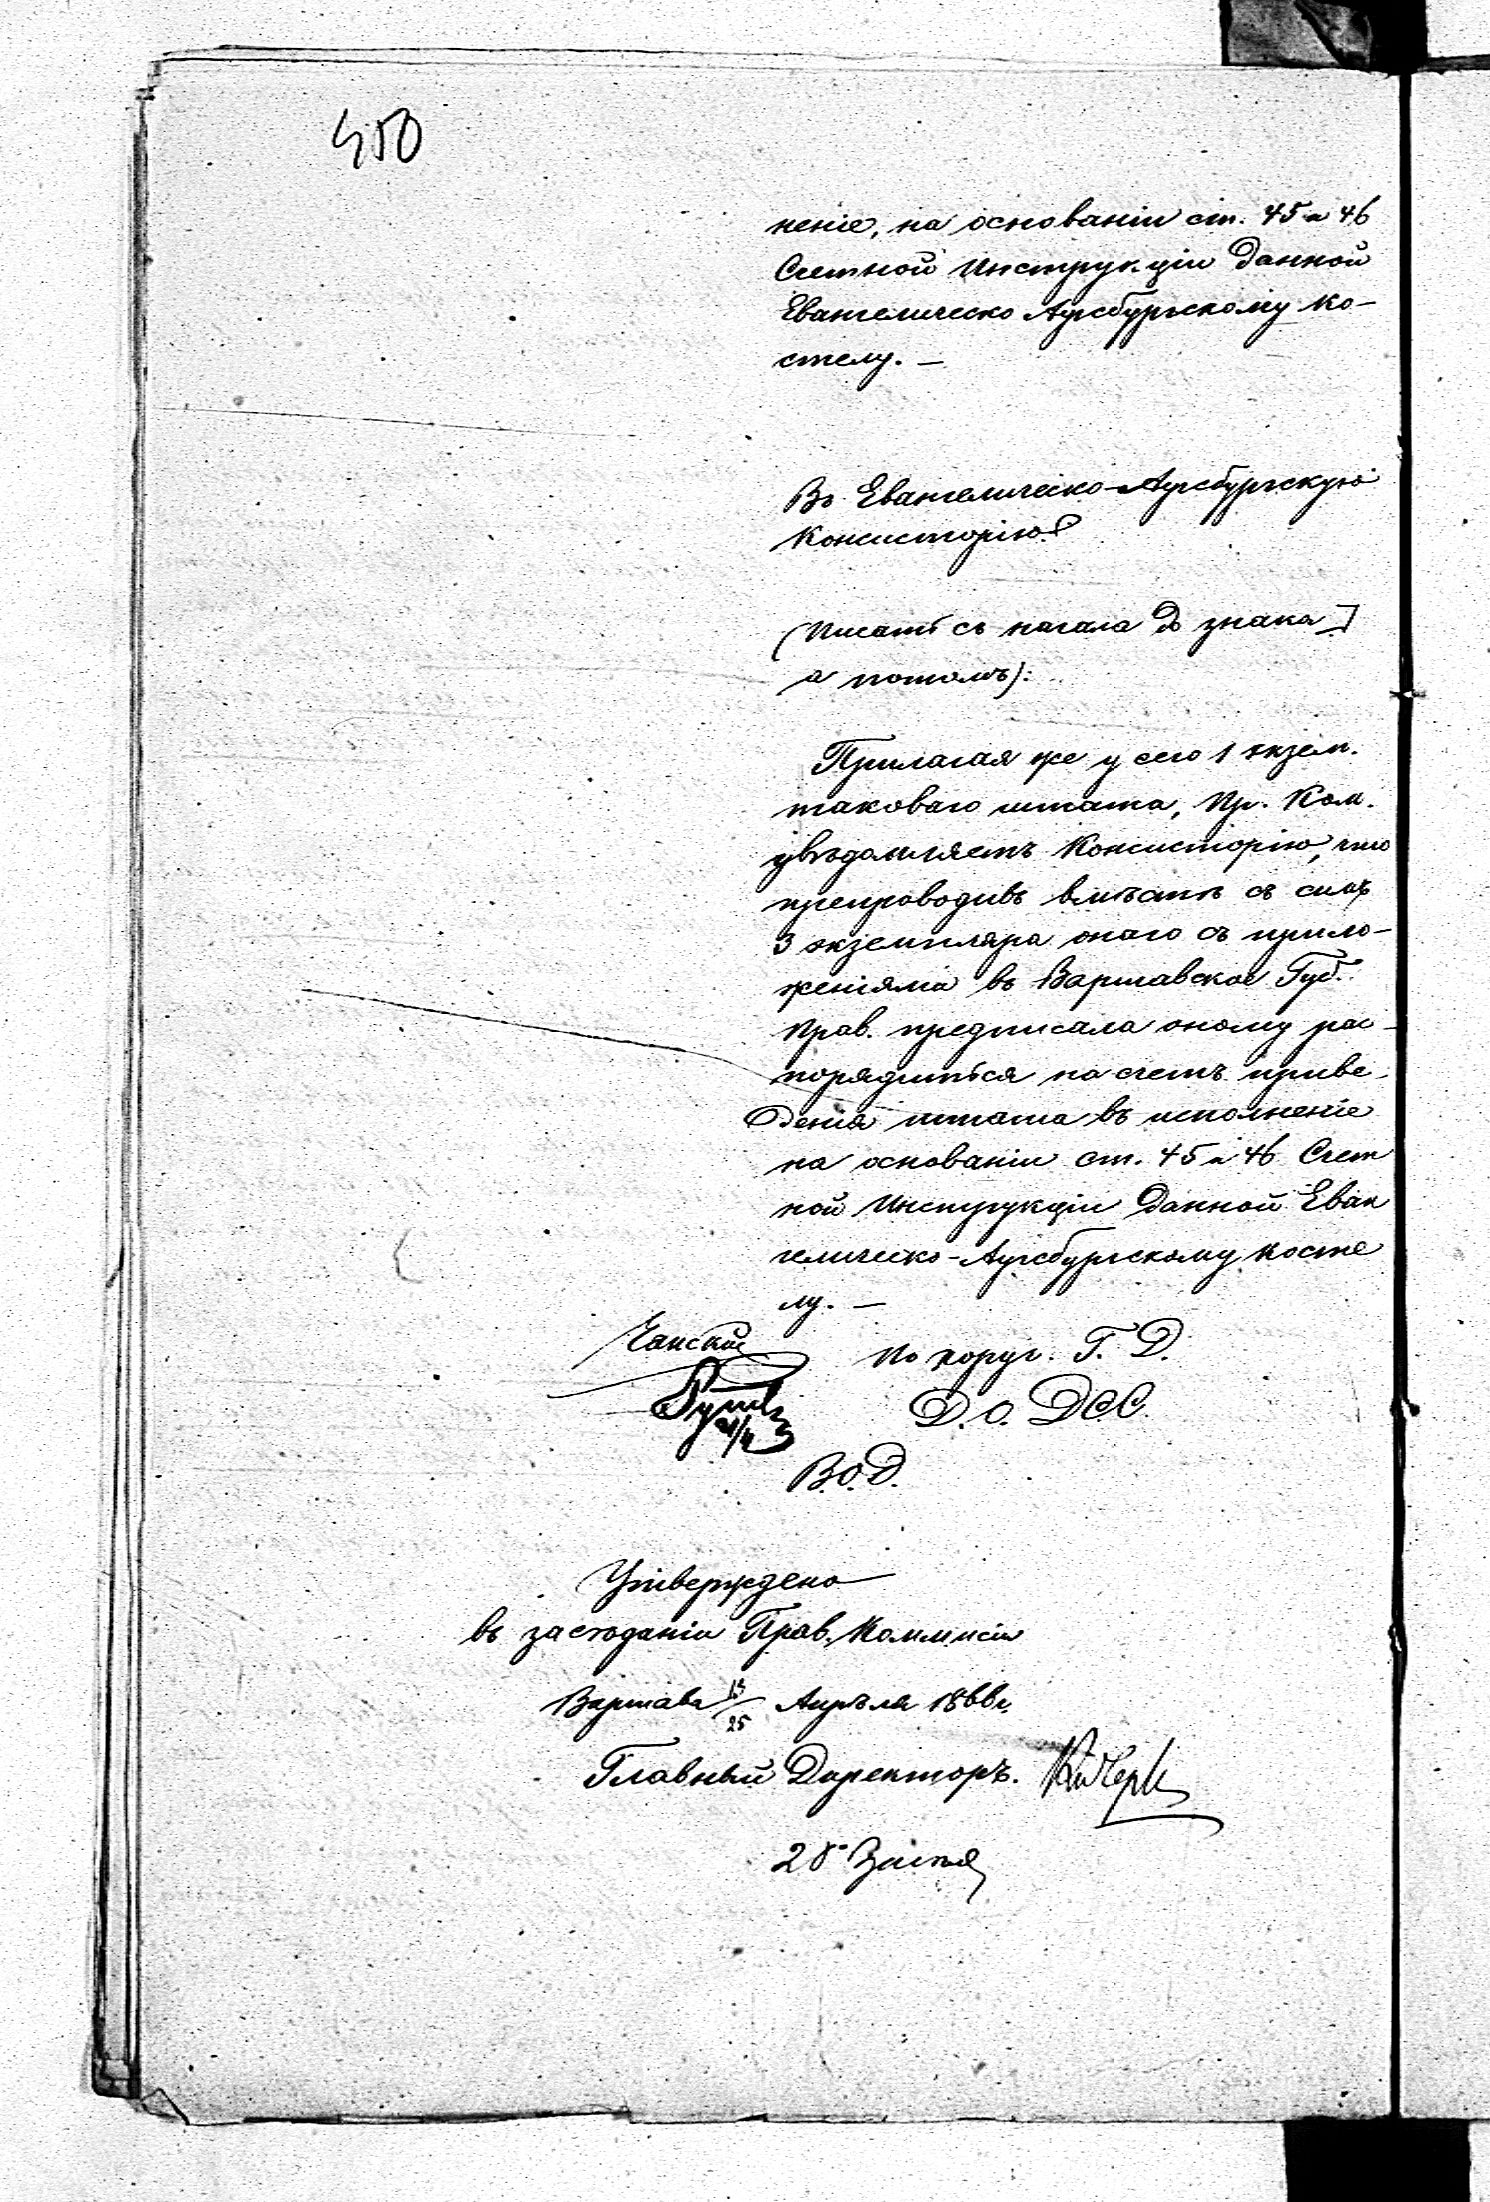 450
неніе, на основаніи ст. 45 и 46
Счетной Инструкціи данной
Евангелическо Аугсбургскому ко-
стелу. —
Въ Евангелическо-Аугсбургскую
Консисторію
(Писать съ начала до знака ]
а потомъ):
Прилагая же у сего 1 экзем.
таковаго штата, Пр. Ком.
увѣдомляетъ Консисторію, что
препроводивъ вмѣстѣ съ симъ
3 экземпляра онаго съ прило-
женіями въ Варшавское Губ.
Прав. предписала оному рас-
порядиться на счетъ приве-
денія штата въ исполненіе
на основаніи ст. 45 и 46 Счет
ной Инструкціи данной Еван
гелическо-Аугсбургскому косте
лу. —
По поруч. Г. Д.
Д. О. ДСС.
В.О.Д.
Утверждено
въ засѣданіи Прав. Коммисіи
Варшава 13/25 Апрѣля 1866 г.
Главный Директоръ.